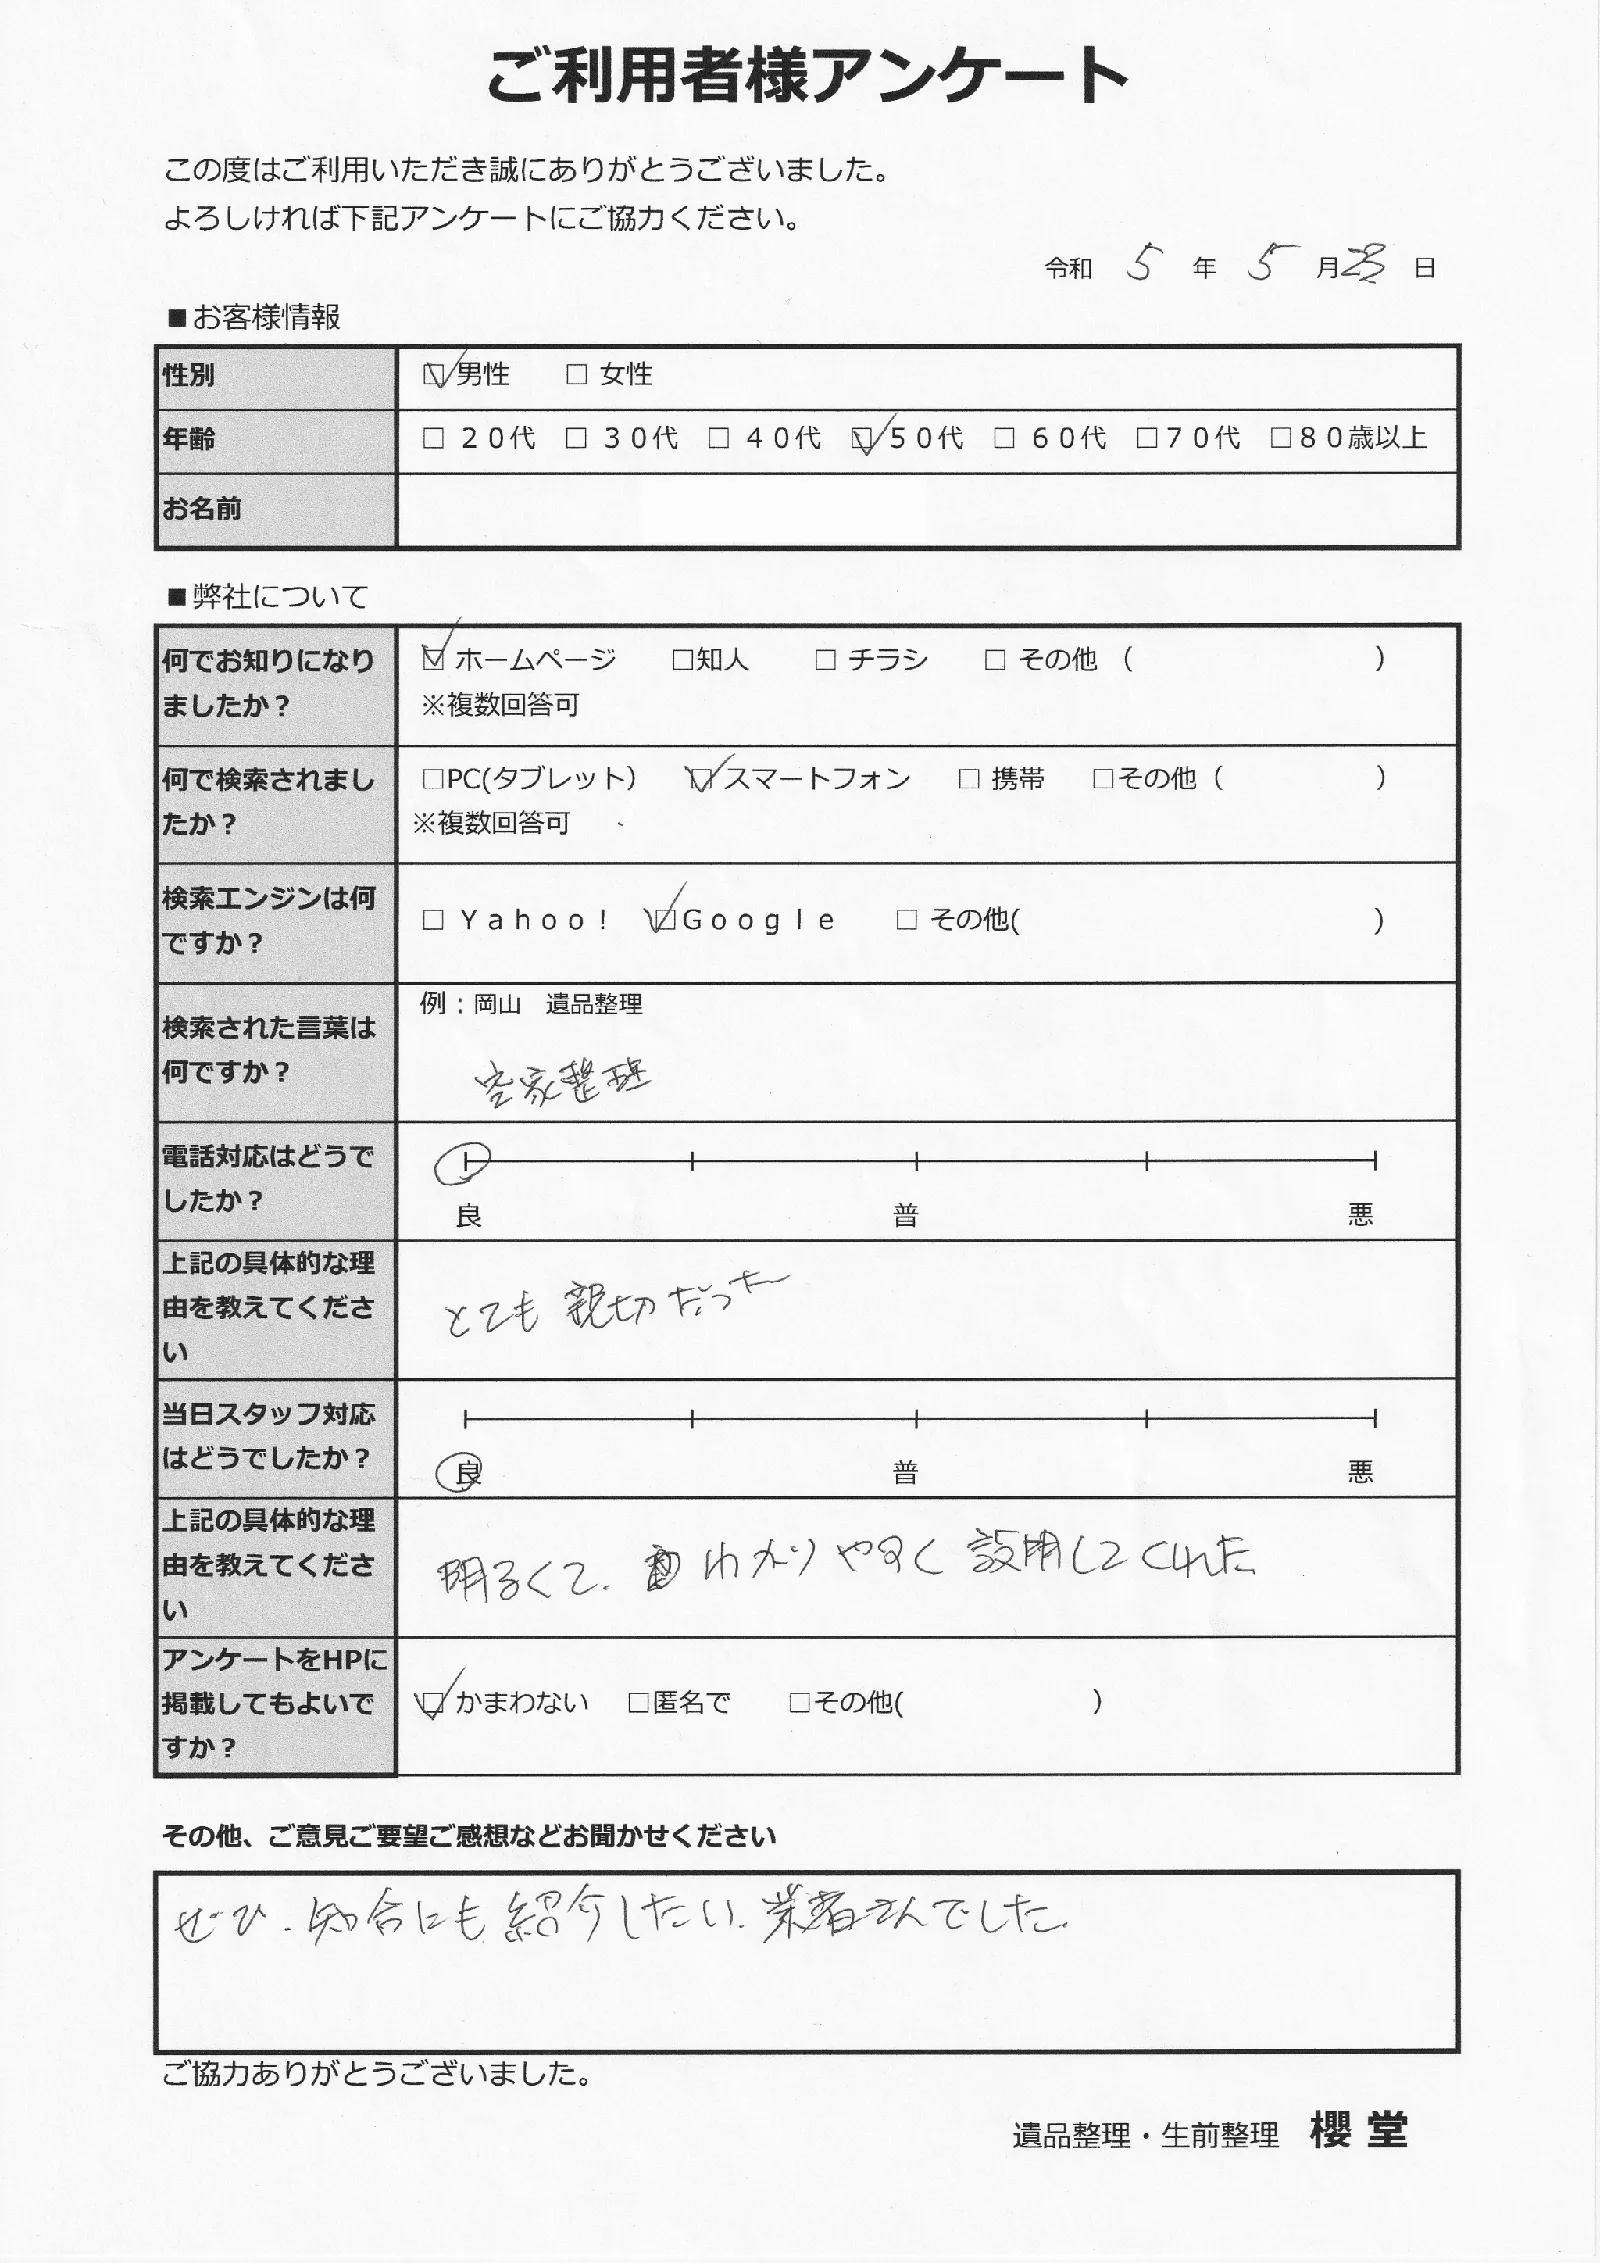 ご利用者様アンケート
この度はご利用いただき誠にありがとうございました。
よろしければ下記アンケートにご協力ください。
令和 5 年 5 月 日
■お客様情報
性別 ☑男性 □ 女性
年齢 □ 20代 □ 30代 □ 40代 ☑50代 □ 60代 □70代 □80歳以上
お名前
■弊社について
何でお知りになり ☑ ホームページ □知人 □ チラシ □ その他 ( )
ましたか？ ※複数回答可
何で検索されまし □PC(タブレット) ☑スマートフォン □ 携帯 □その他 ( )
たか？ ※複数回答可
検索エンジンは何 □ Yahoo! ☑Google □ その他( )
ですか？
例：岡山 遺品整理
検索された言葉は
何ですか？ 空家整理
電話対応はどうで
したか？ 良 普 悪
上記の具体的な理
由を教えてくださ とても親切だった
い
当日スタッフ対応
はどうでしたか？ 良 普 悪
上記の具体的な理
由を教えてくださ 明るくて、わかりやすく説明してくれた
い
アンケートをHPに
掲載してもよいで ☑ かまわない □匿名で □その他( )
すか？
その他、ご意見ご要望ご感想などお聞かせください
ぜひ、知合にも紹介したい、業者さんでした
ご協力ありがとうございました。
遺品整理・生前整理 櫻堂